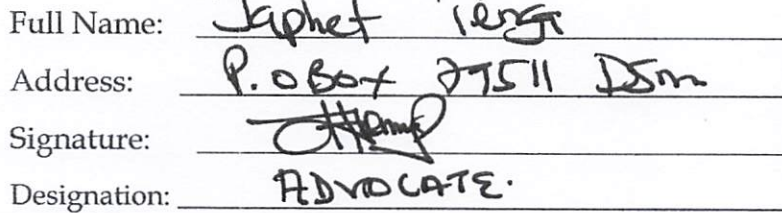 Full Name: Japhet
Address: P.O Box 79511 DSm
Signature:
Designation: ADVOCATE.